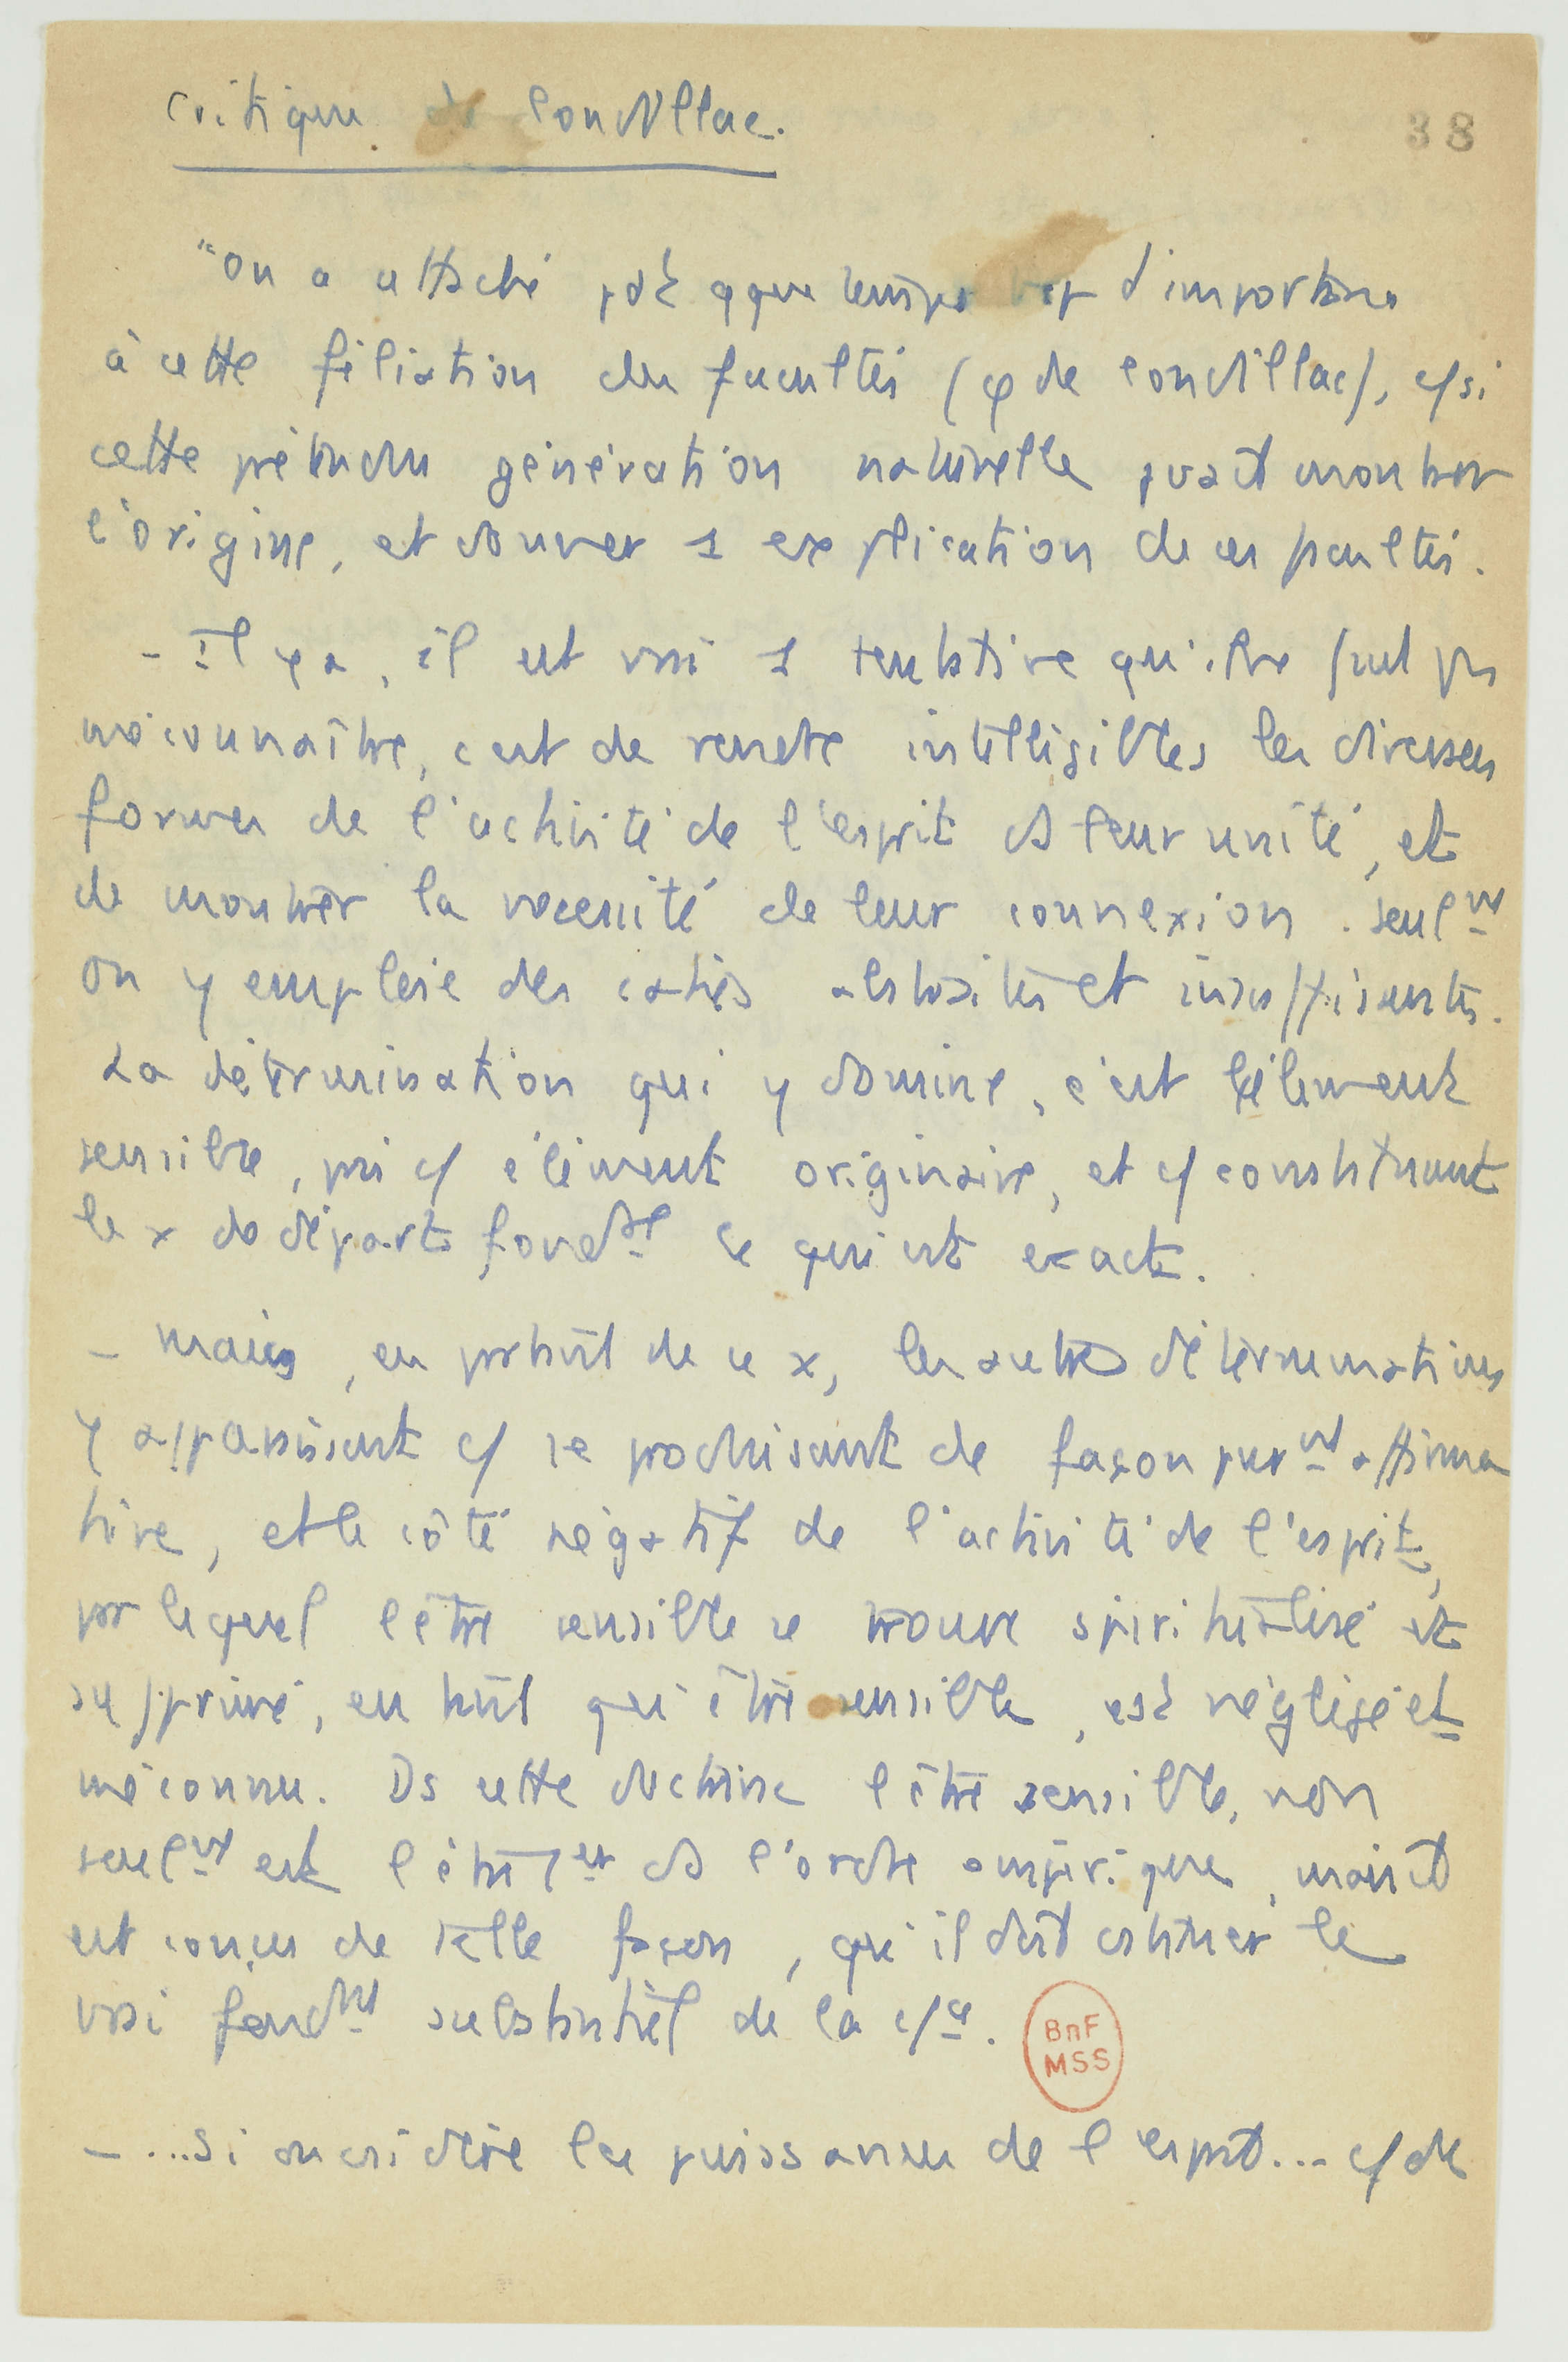 Critique de Condillac.
38
"On a attaché pdt qque temps trop d'importance
à cette filiation des facultés (φ de Condillac), c/ si
cette prétendue génération naturelle pvait montrer
l'origine, et donner 1 explication de ces facultés.
- Il y a, il est vrai 1 tentative qu'il ne faut pas
méconnaître, c'est de rendre intelligibles les diverses
formes de l'activité de l'esprit ds leur unité, et
de montrer la nécessité de leur connexion. Seulmt
on y emploie des caties abstraites et insuffisantes.
La détermination qui y domine, c'est l'élément
sensible, pris c/ élément originaire, et c/ constituant
le x de départ fondtal ce qui est exact.
- mais, en partant de ce x, les autres déterminations
y apparaissent c/ se produisant de façon purmt affirma
tive, et le côté négatif de l'activité de l'esprit,
par lequel l'être sensible se trouve spiritualisé et
supprimé, en tant qu'être sensible, est négligé et
méconnu. Ds cette doctrine l'être sensible, non
seulmt est l'être 1er ds l'ordre empirique, mais il
est conçu de telle façon, qu'il doit cstituer le
vrai fondmt substantiel de la c/ce.
BnF
MSS
- ...Si on csidère les puissances de l'esprit... c/ des